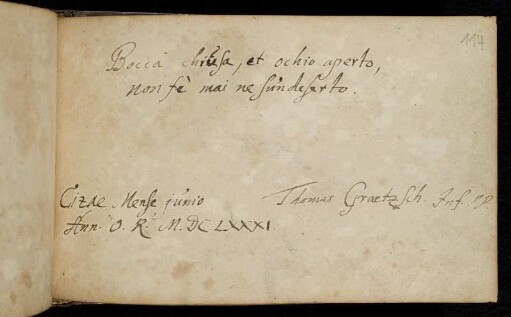 114
Bocca chiusa, et ochio aperto,
non fè mai nessun deserto.
Cizae Mense junio
Ann. O. R. M. DC LXXXI
Thomas Graetzsch. Inf. P.